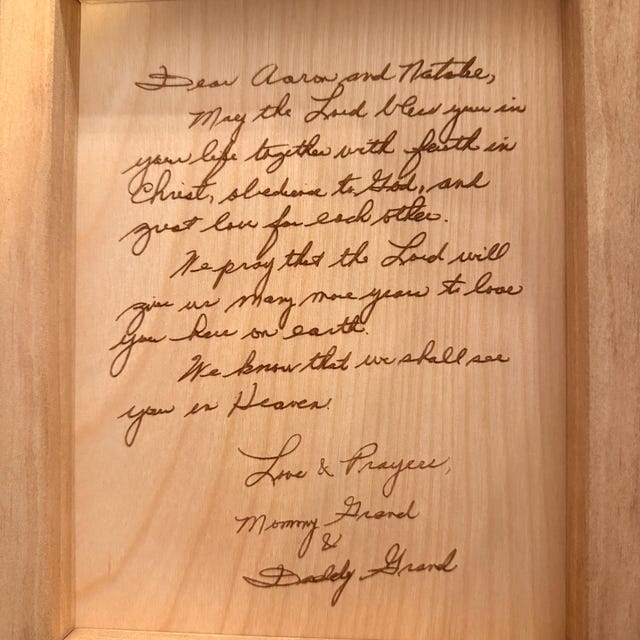 Dear Aaron and Natalie,
May the Lord bless you in
your life together with faith in
Christ, obedience to God, and
great love for each other.
We pray that the Lord will
give us many more years to love
you here on earth.
We know that we shall see
you in Heaven.
Love & Prayers,
Mommy Grand
&
Daddy Grand